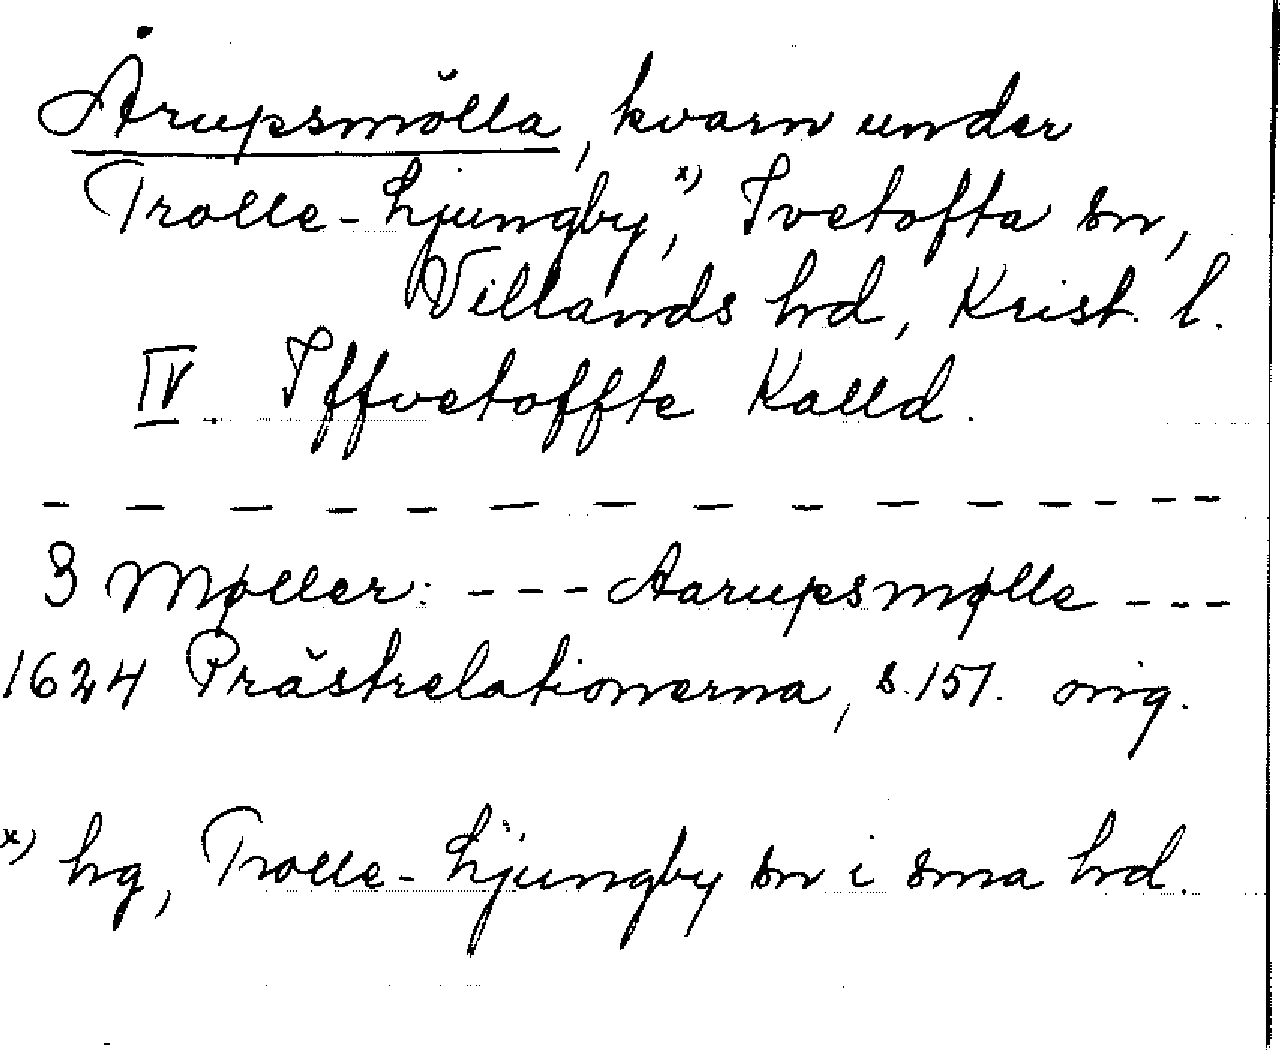 Årupsmölla, kvarn under
Trolle-Ljungby,x) Ivetofta sn,
Villands hd, Krist. l.
IV. Iffvetoffte Kalld.
- - - - - - - - - - - - - -
3 Møller: --- Aarupsmølle ---
1624 Prästrelationerna, s. 151. orig.
x) hg, Trolle-Ljungby sn i sma hd.